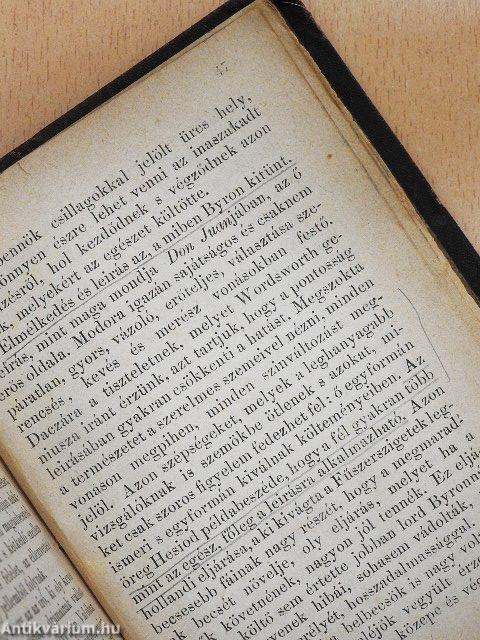 47
bennök csillagokkal jelölt üres hely,
könnyen észre lehet venni az inaszakadt
zésről, hol kezdődnek s végződnek azon
k, melyekért az egészet költötte.
Elmélkedés és leírás az, a miben Byron kitünt.
leírás, mint maga mondja Don Juanjában, az ő
erős oldala. Modora igazán sajátságos és csaknem
páratlan, gyors, vázoló, erőteljes, választása sze-
rencsés, kevés és merész vonásokban festő.
Daczára a tiszteletnek, melyet Wordsworth ge-
niusza iránt érzünk, azt tartjuk, hogy a pontosság
leírásában gyakran csökkenti a hatást. Megszokta
a természetet a szerelmes szemeivel nézni, minden
vonáson megpihen, minden színváltozást meg-
jelöl. Azon szépségeket, melyek a leghanyagabb
vizsgálóknak is szemökbe ötlenek s azokat, mi-
ket csak szoros figyelem fedezhet fel: ő egyformán
ismeri s egyformán kiválnak költeményeiben. Az
öreg Hesiod példabeszéde, hogy a fél gyakran több
mint az egész, főleg a leírásra alkalmazható. Azon
hollandi eljárása, a ki kivágta a Fűszerszigetek leg-
becsesebb fáinak nagy részét, hogy a megmarad-
becsét növelje, oly eljárás, melyet ha a
követnének, nagyon jól tennék. Ez eljá-
költő sem értette jobban lord Byronn
hibái, sohasem vádolták,
hosszadalmassággal.
belbecsök is nagy volt
vegyült érz
közepe és vég
Antikvárium.hu